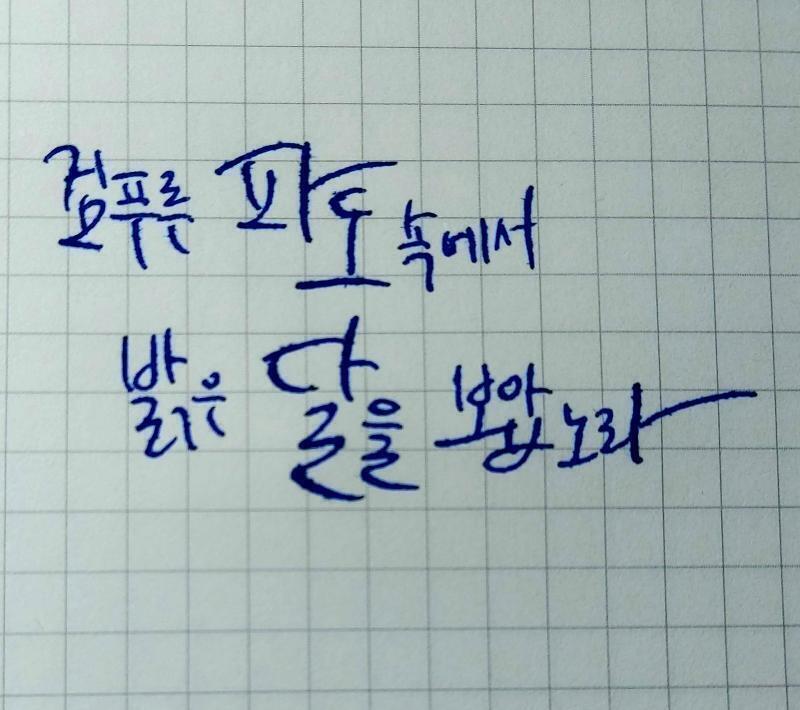 검푸른 파도 속에서
밝은 달을 보았노라